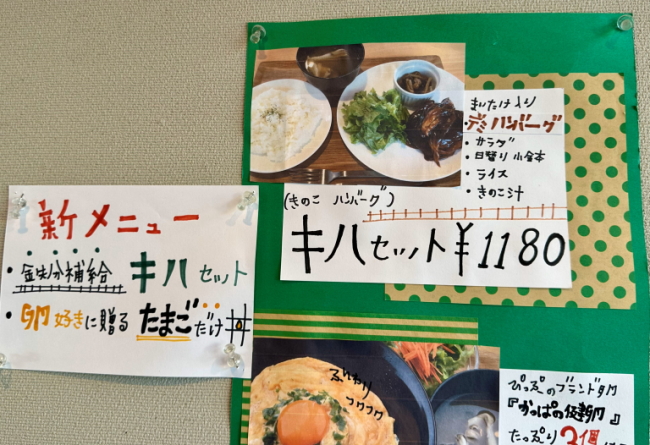 新メニュー
・鉄分補給 キハセット
・タM好きに贈る たまごだけ丼
まいたけ入り
デミハンバーグ
・サラダ
・日替り小鉢
・ライス
・きのこ汁
(きのこ ハンバーグ)
キハセット¥1180
ふんわり
フワフワ
ぴっぴのブランドタM
『かっぱの
たっぷり2個